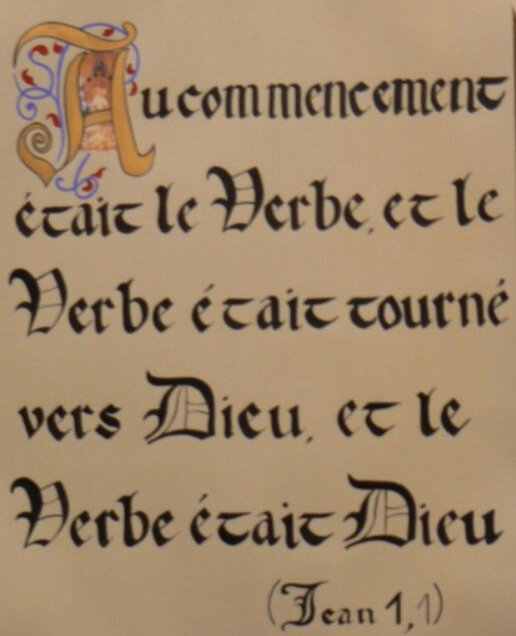 Au commencement
était le Verbe, et le
Verbe était tourné
vers Dieu, et le
Verbe était Dieu
(Jean 1,1)